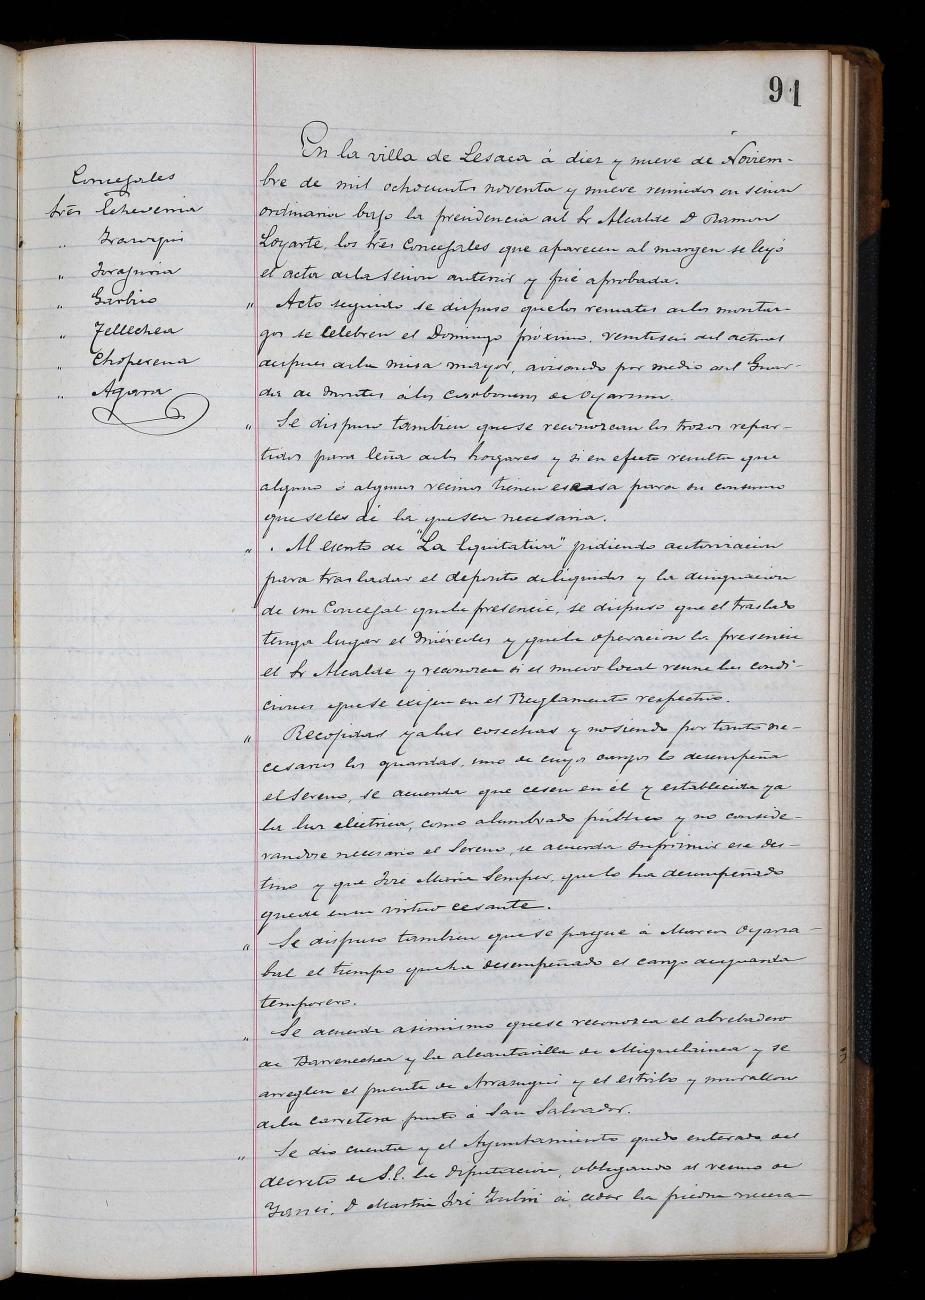 91
Concejales
Sres Echeverria
" Irazoqui
" Garbiso
" Tellechea
" Choperena
" Agara
En la villa de Lesaca á diez y nueve de Noviem-
bre de mil ochocientos noventa y nueve reunidos en sesion
ordinaria bajo la presidencia del Sr Alcalde D. Ramon
Loyarte, los Sres Concejales que aparecen al margen se leyó
el acta dela sesion anterior y fué aprobada.
" Acto seguido se dispuso quelos remates delos montaz-
gos se celebren el Domingo próximo, veintiseis del actual
despues dela misa mayor, avisando por medio del Guar-
da de Montes álos carboneros de Oyarzun.
" Se dispuso tambien quese reconozcan los trozos repar-
tidos para leña delos hogares y si en efecto resulta que
alguno ó algunos vecinos tienen escasa para su consumo
queseles dé la quesea necesaria.
" Al escrito de "La Equitativa" pidiendo autorizacion
para trasladar el deposito deliquidos y la designacion
de un Concejal quelo presencie, se dispuso que el traslado
tenga lugar el Miércoles y quela operacion la presencie
el Sr Alcalde y reconozca si el nuevo local reune las condi-
ciones quese exijen en el Reglamento respectivo.
" Recojidas yalas cosechas y nosiendo por tanto ne-
cesarios los guardas, uno de cuyos cargos lo desempeña
el Sereno, se acuerda que cesen en él y establecida ya
la luz electrica, como alumbrado público y no conside-
randose necesario el Sereno, se acuerda suprimir ese des-
tino y que José Maria Semper, quelo ha desempeñado
quede ensu virtud cesante.
" Se dispuso tambien quese pague á Marcos Oyarza-
bal el tiempo queha desempeñado el cargo deguarda
temporero.
" Se acuerda asimismo quese reconozca el abrebadero
de Barrenechea y la alcantarilla de Miquelainea y se
arreglen el puente de Arrasugui y el estribo y murallon
dela carretera junto á San Salvador.
" Se dio cuenta y el Ayuntamiento quedó enterado del
decreto de S.E. la Diputacion, obligando al vecino de
Yanci, D. Martin José á ceder la piedra necesa-